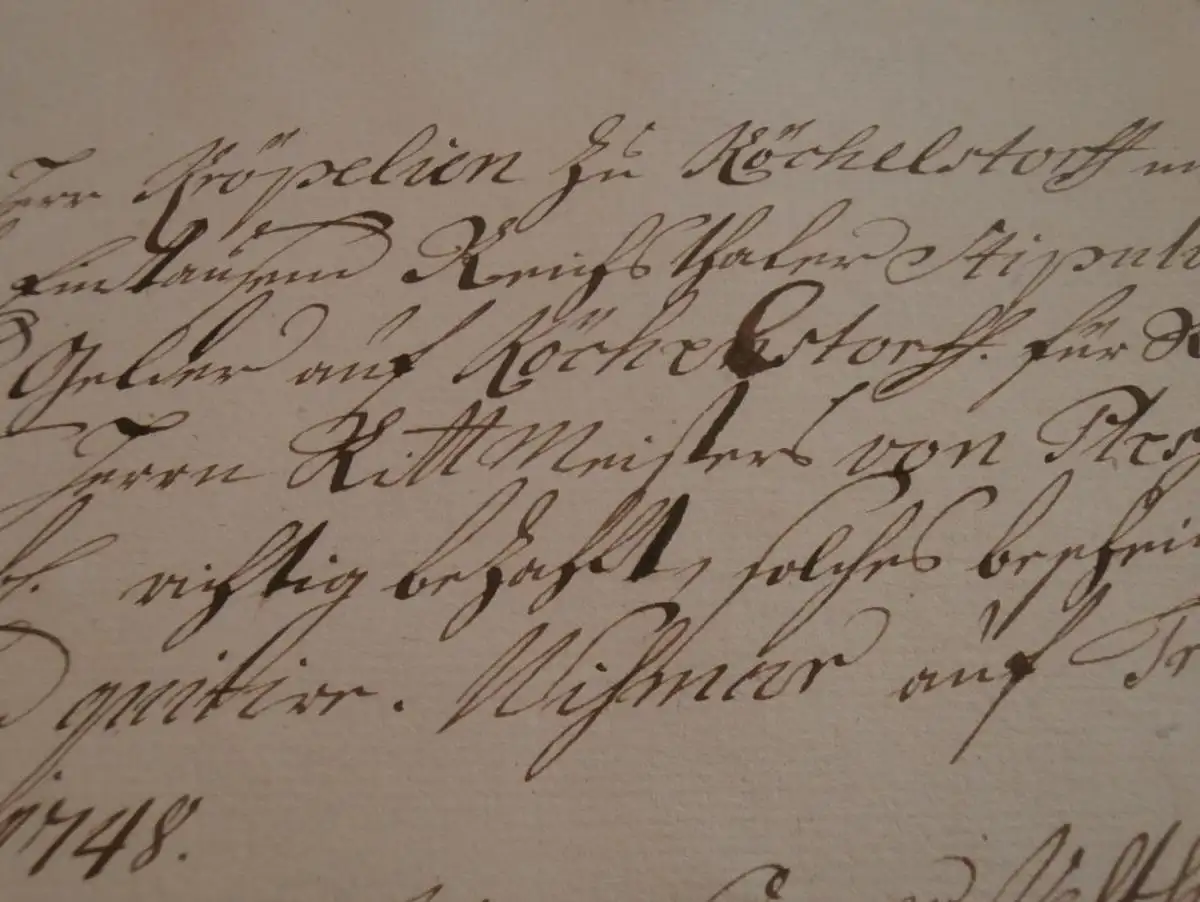 Herr Kröpelien zu Köchelstorff
Eintausend Reichsthaler Stipuli
Gelder auf Köchelstorff. für
Herrn RittMeisters von Ples
richtig bezahlt, solches beschei
quitire. Wißmar auf Tr
1748.